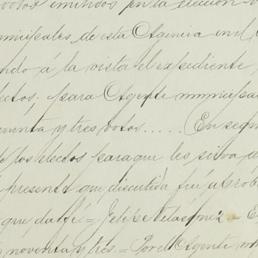 votos emitidos en la eleccion
municipales de esta Agencia en el
ando á la vista el expediente
electos, para Agente municipal
cuenta y tres votos..... En segui
los electos para que les sirva
presente que discutida fué aprob
que da fé = Felix Velasquez =
noventa y tres = Por el Agente